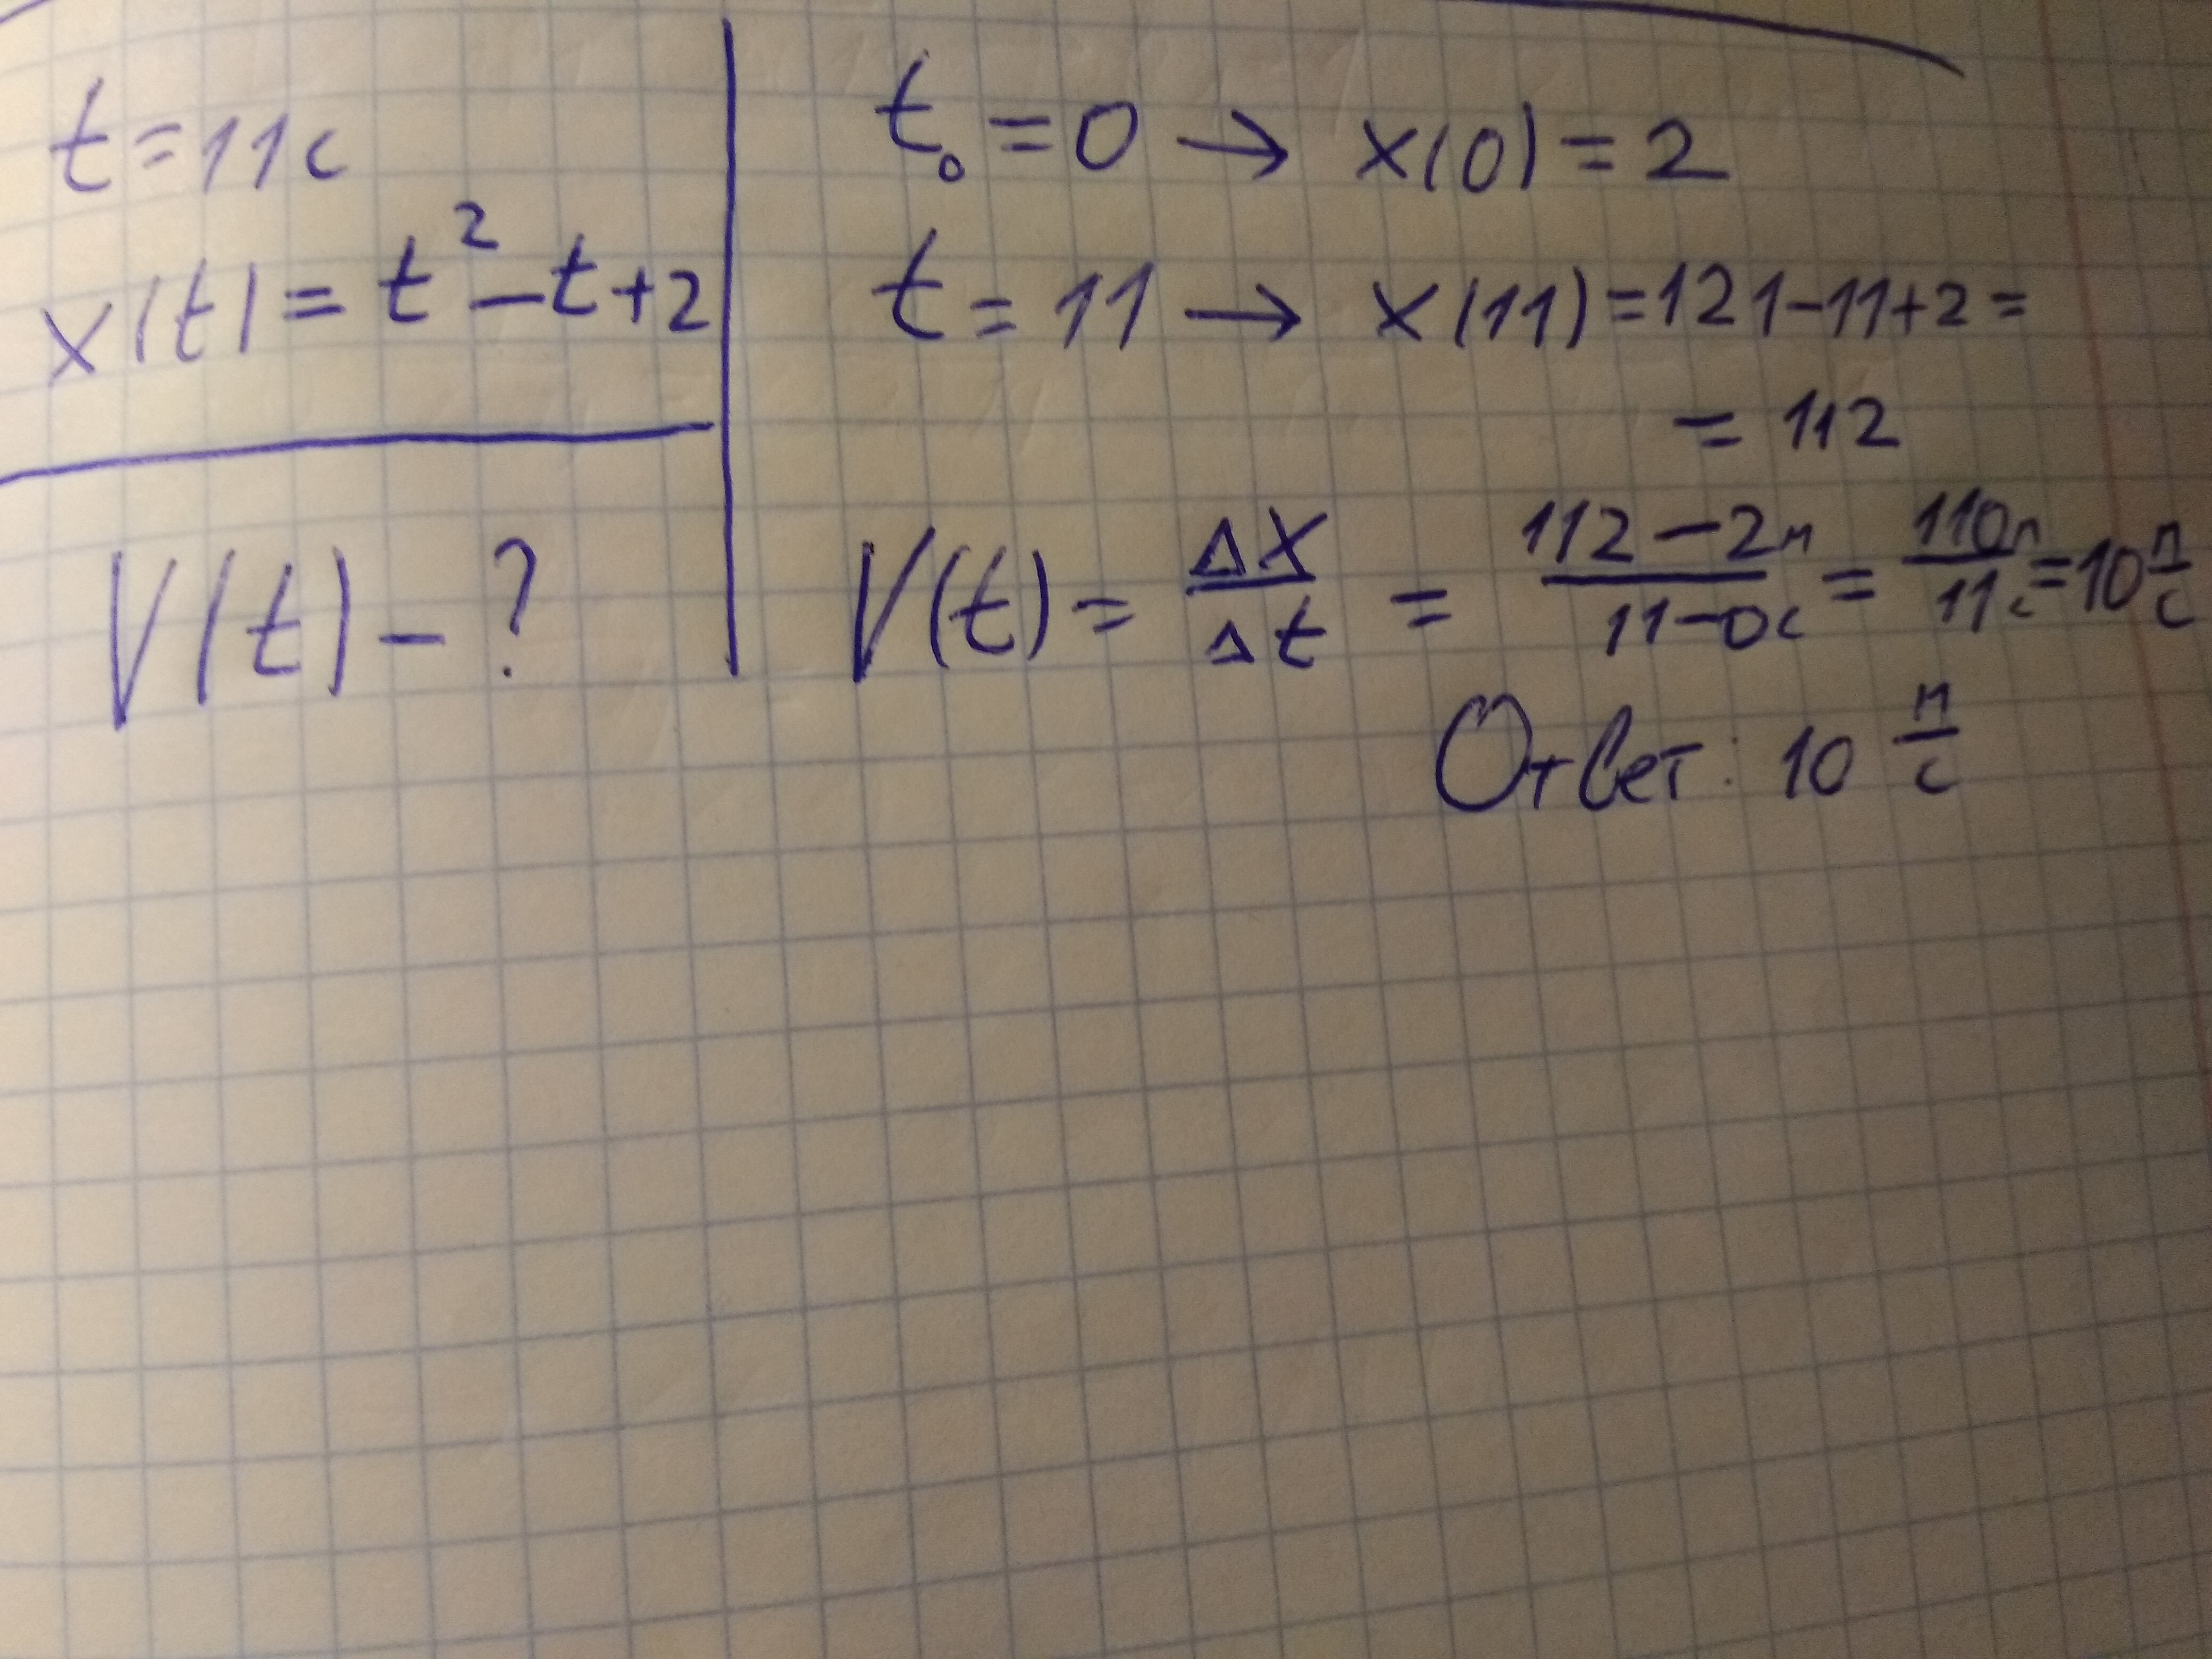 t = 11 с
x(t) = t² - t + 2
V(t) - ?
t₀ = 0 → x(0) = 2
t = 11 → x(11) = 121 - 11 + 2 =
= 112
V(t) = Δx/Δt = (112 - 2м)/(11 - 0с) = 110м/11с = 10 м/с
Ответ: 10 м/с